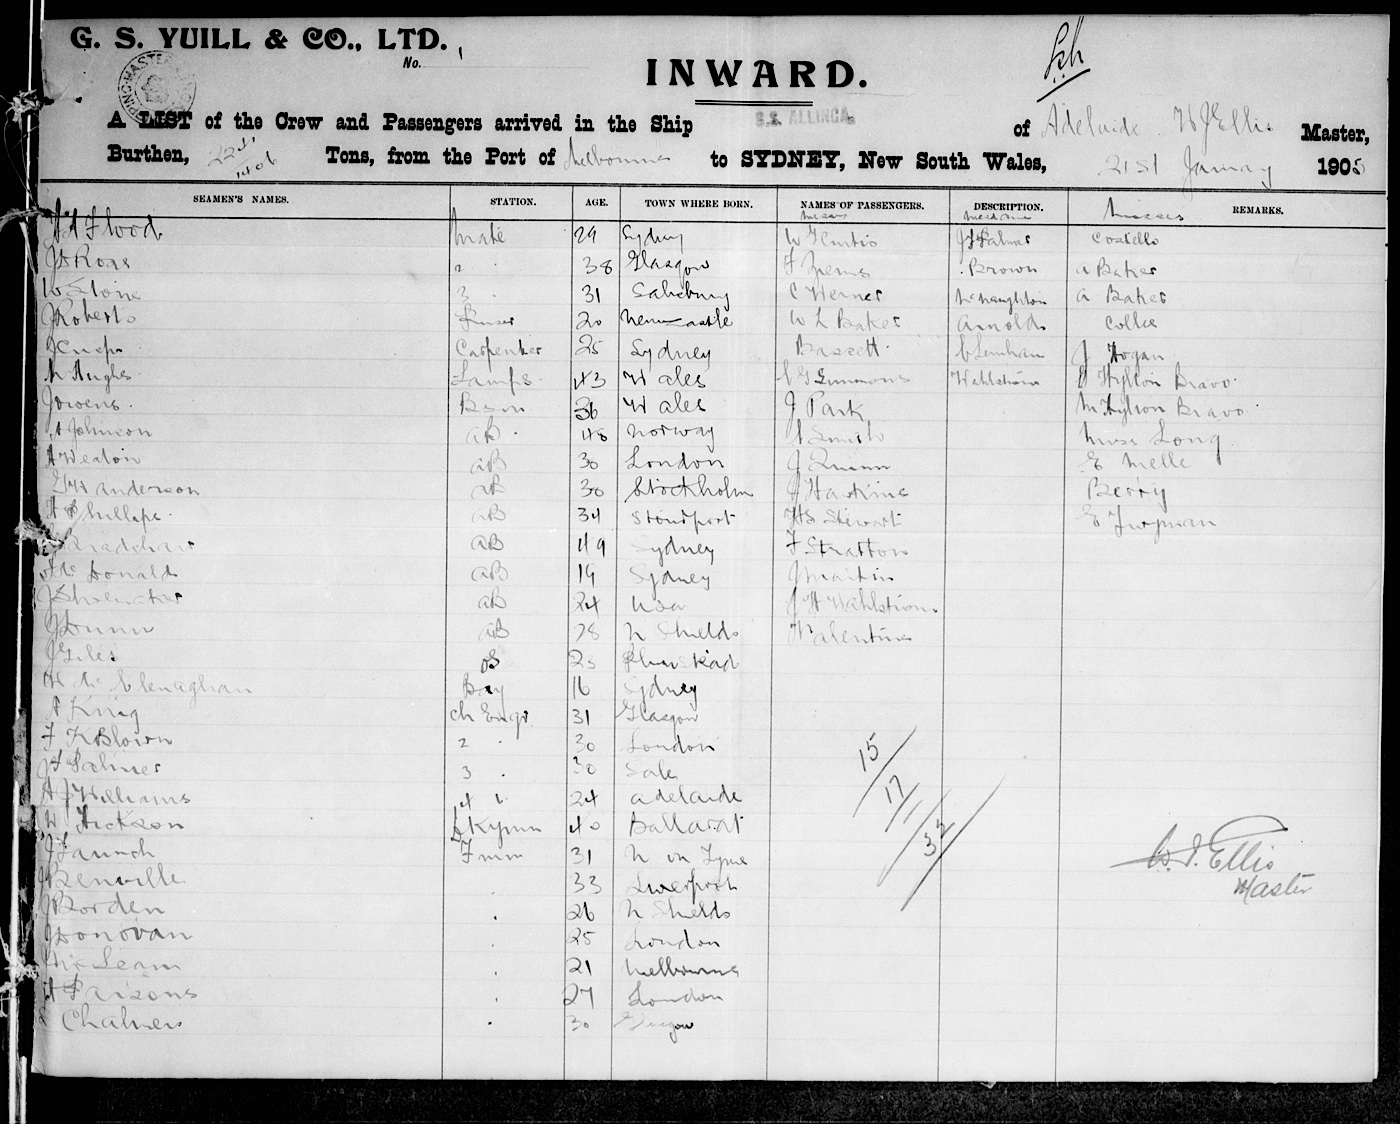 G. S. YUILL & CO., LTD.
No. 1
INWARD.
A LIST of the Crew and Passengers arrived in the Ship S.S. ALLINGA. of Adelaide W J Ellis Master,
Burthen, 2241 Tons, from the Port of Melbourne to SYDNEY, New South Wales, 21st January 1905
SEAMEN'S NAMES. STATION. AGE. TOWN WHERE BORN. NAMES OF PASSENGERS. DESCRIPTION. REMARKS.
Messrs Misses
Flood Mate 29 Sydney W Curtis J Palmer Costello
J Ross 2 38 Glasgow F Brown A Baker
W Stone 3 31 Salisbury C Werner McNaughton A Baker
J Roberts 20 Newcastle W L Baker Arnold Collie
J Carpenter 25 Sydney Bassett Lenihan J Hogan
M Hughes Lamps 43 Wales G Simmons Wahlstrom Hylton Bravo
J Owens Bsun 36 Wales J Park M Hylton Bravo
A Johnson AB 48 Norway Smith Miss Long
A Weston AB 30 London J Quinn E Melle
G W Anderson AB 30 Stockholm J Hawkins Berry
H Phillips AB 34 Stourport H S Stewart E Twyman
Bradshaw AB 49 Sydney F Stratton
McDonald AB 19 Sydney J Martin
J AB 24 USA J H Wahlstrom
J Dunn AB 28 N Shields Valentine
J Giles OS 23
H McClenaghan Boy 16 Sydney
A King Ch Engr 31 Glasgow
F K Blown 2 30 London
J F Palmer 3 30 Sale
A J Williams 4 24 Adelaide
W Hickson Dkymn 40 Ballarat
J Faunch Fmn 31 N on Tyne
J Benville 33 Liverpool
J Borden 26 N Shields
J Donovan 25 London
21 Melbourne
A Parsons 27 London
Chalmers 30 Glasgow
15
17
1
33
W. J. Ellis
Master